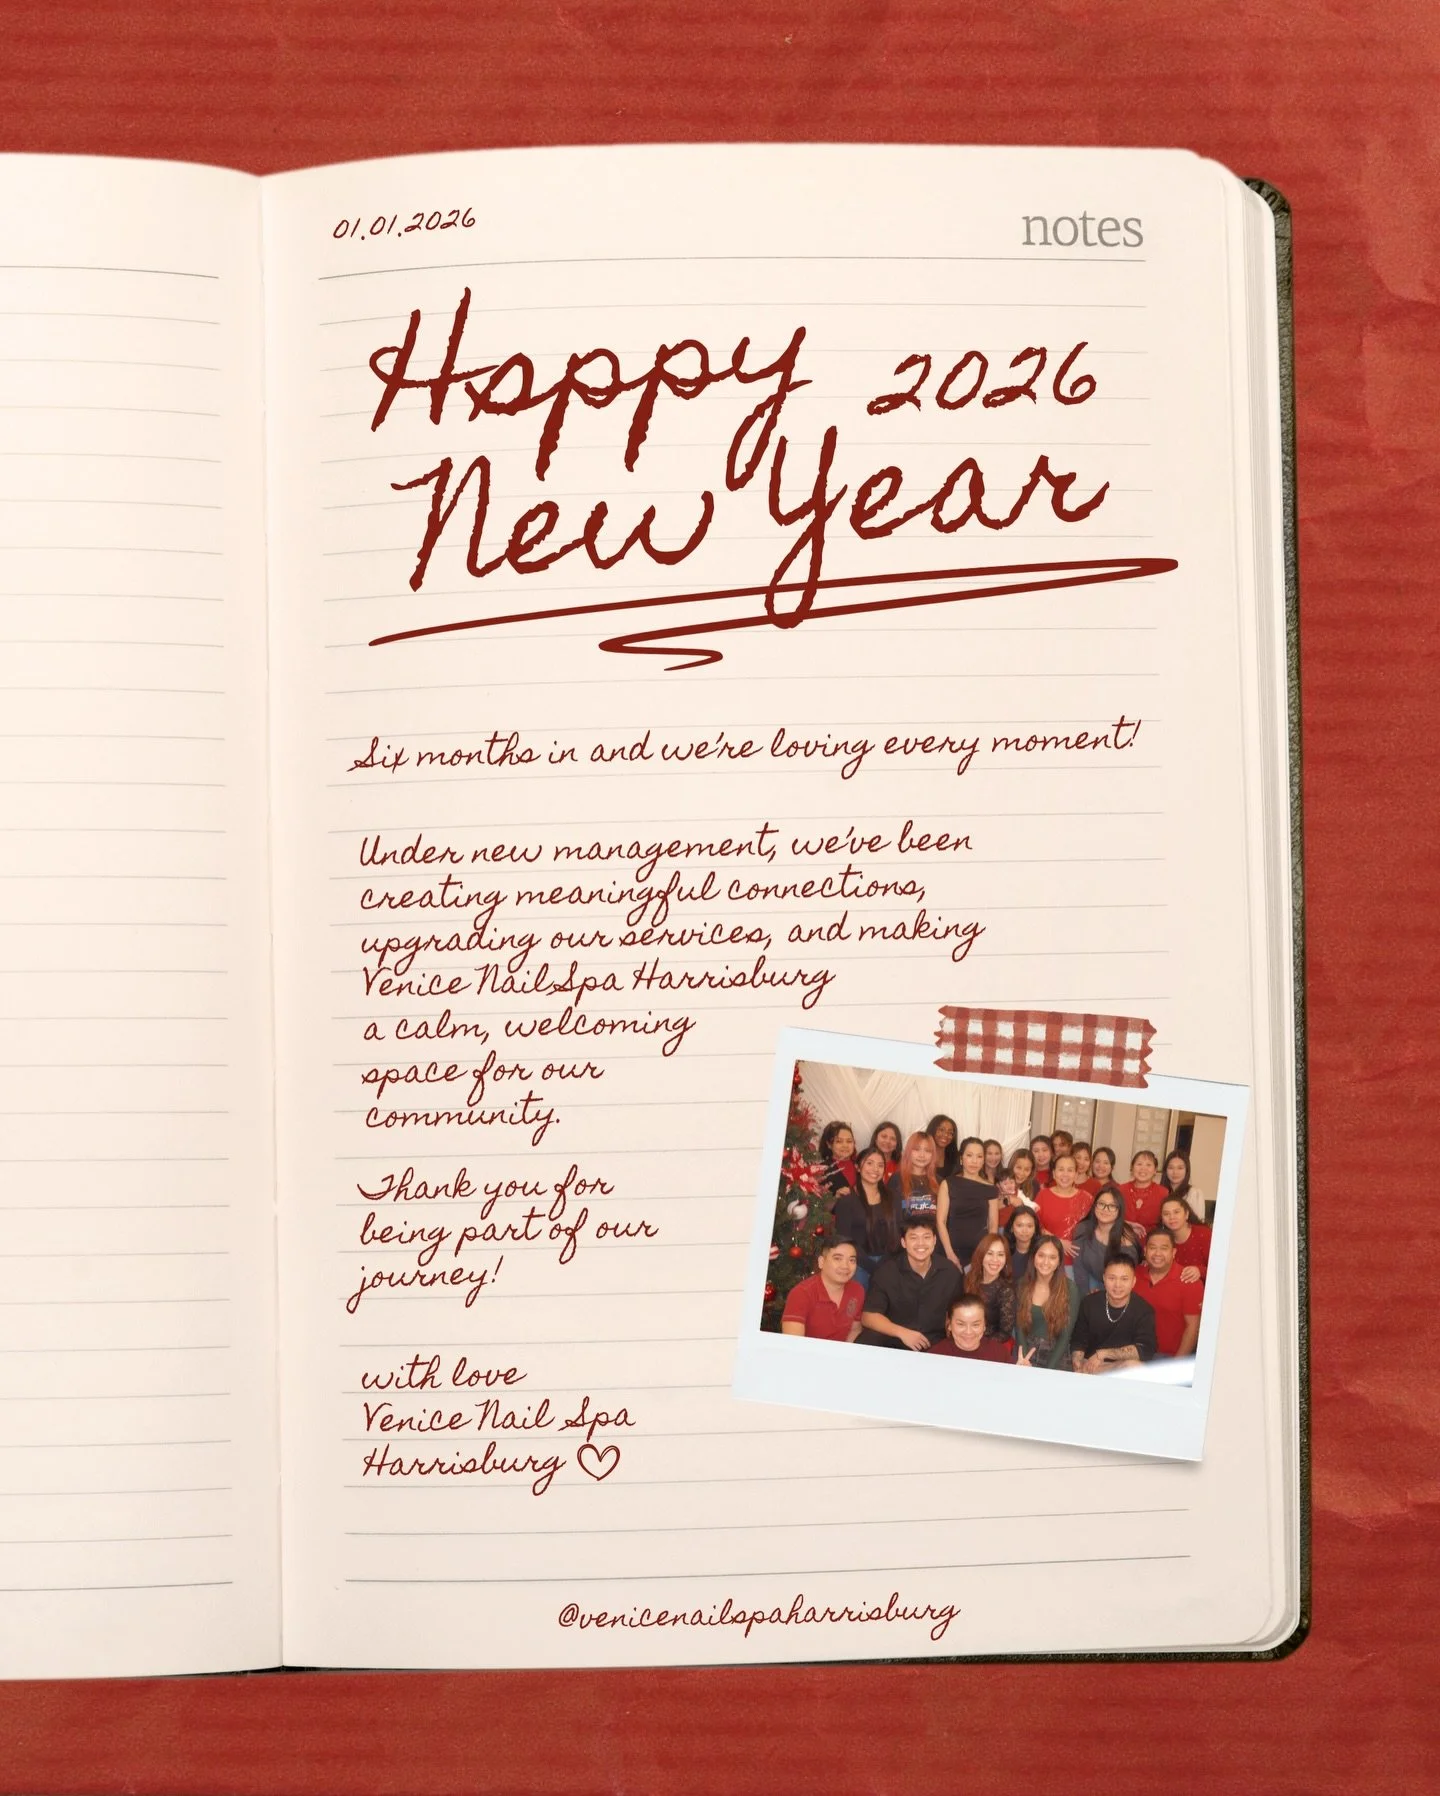 01.01.2026
notes
Happy 2026
New Year
Six months in and we're loving every moment!
Under new management, we've been
creating meaningful connections,
upgrading our services, and making
Venice Nail Spa Harrisburg
a calm, welcoming
space for our
community.
Thank you for
being part of our
journey!
with love
Venice Nail Spa
Harrisburg ♡
@venicenailspaharrisburg